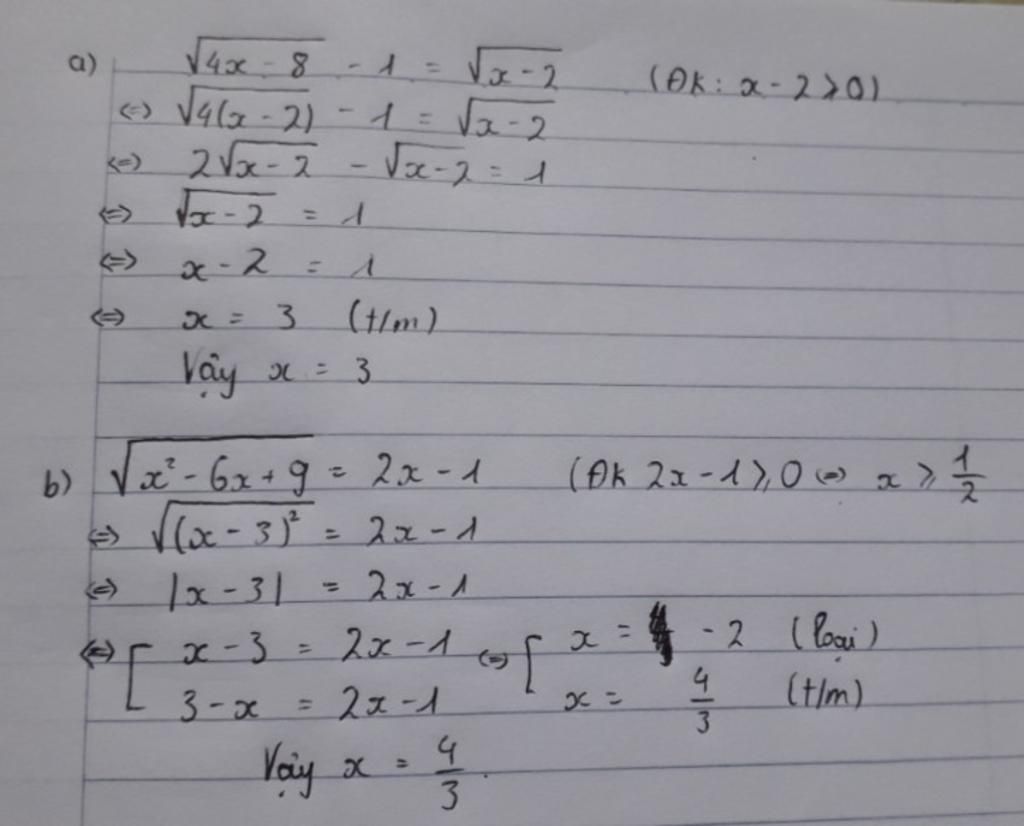 a) √(4x - 8) - 1 = √(x - 2) (ĐK: x - 2 ≥ 0)
⇔ √(4(x - 2)) - 1 = √(x - 2)
⇔ 2√(x - 2) - √(x - 2) = 1
⇔ √(x - 2) = 1
⇔ x - 2 = 1
⇔ x = 3 (t/m)
Vậy x = 3
b) √(x² - 6x + 9) = 2x - 1 (ĐK 2x - 1 ≥ 0 ⇔ x ≥ 1/2)
⇔ √((x - 3)²) = 2x - 1
⇔ |x - 3| = 2x - 1
⇔ [ x - 3 = 2x - 1 ⇔ [ x = - 2 (loại)
3 - x = 2x - 1 x = 4/3 (t/m)
Vậy x = 4/3.